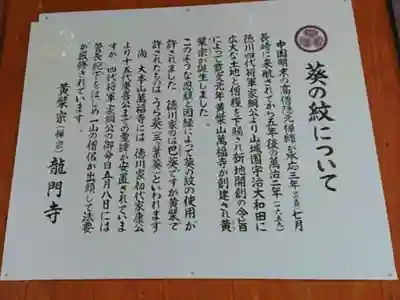 葵の紋について
中国明末の高僧隠元禅師が承応三年(一六五四)七月
長崎に来航されてから五年後の萬治二年(一六五九)
徳川四代将軍家綱公より山城国宇治大和田に
広大な土地と僧糧を下賜され新地開創の令旨
によって寛文元年黄檗山萬福寺が創建され黄
檗宗が誕生しました。
このような恩顧と因縁によって葵の紋の使用が
許されました 徳川家のは巴葵ですが黄檗で
許されたものはうら葵(三つ裏葵)といわれます
尚 大本山萬福寺には 徳川家初代家康公
より十五代慶喜公までの霊牌が安置されていま
すが 四代将軍家綱公の御命日五月八日には
管長猊下をはじめ一山の僧侶が出頭して法要
が厳修されています。
黄檗宗(禅宗) 龍門寺